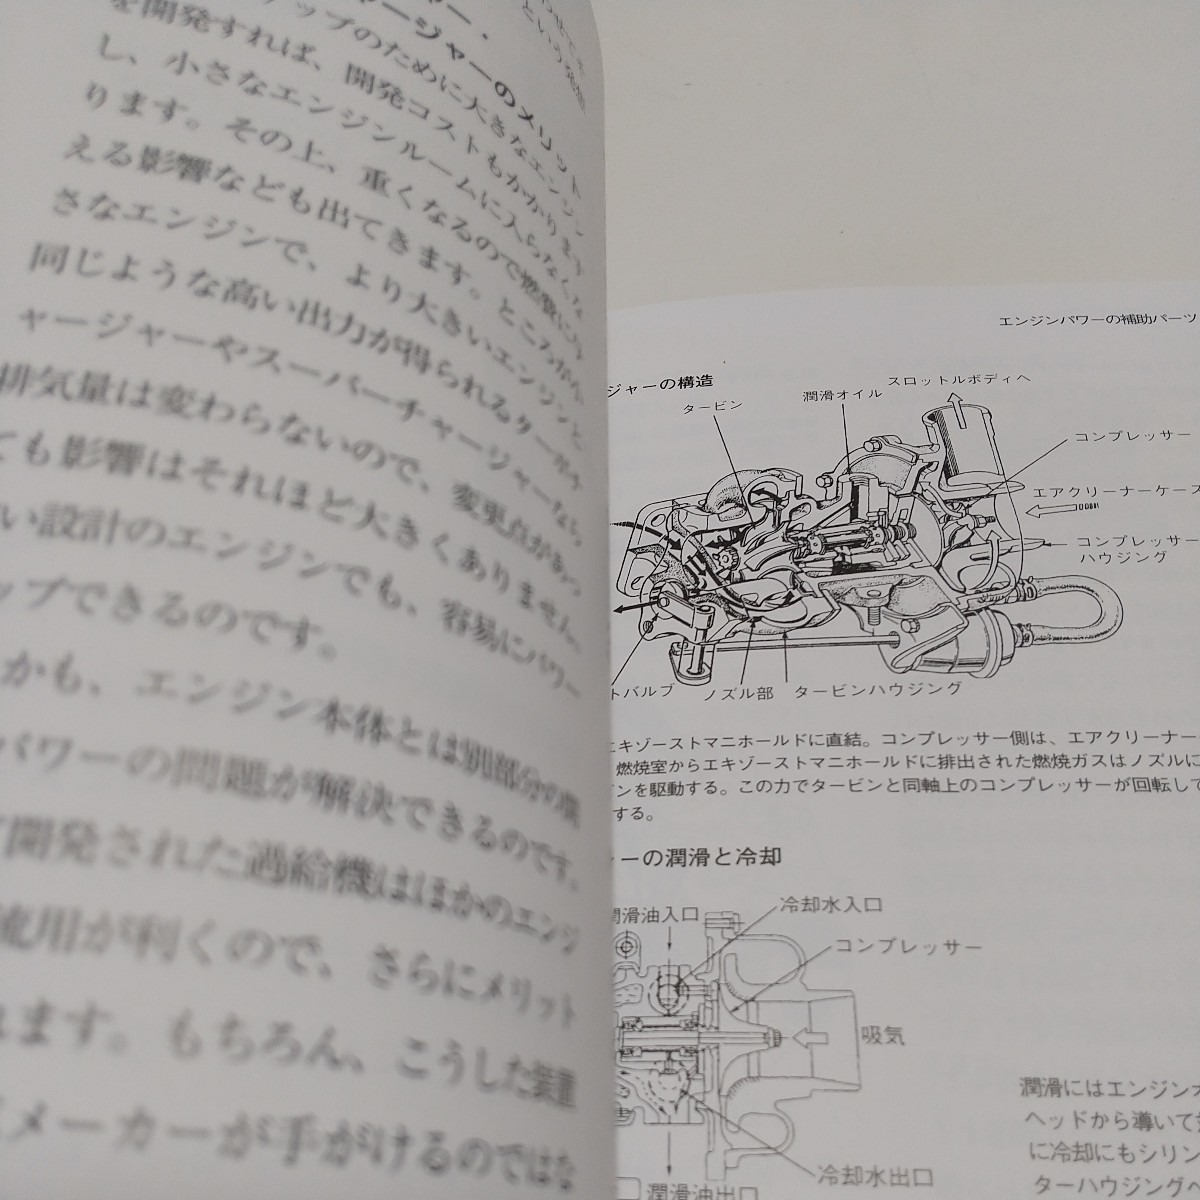 ャージャーのメリット
アップのために大きなエンジン
を開発すれば、開発コストもかかりま
し、小さなエンジンルームに入らなくな
ります。その上、重くなるので燃費に
える影響なども出てきます。ところが
さなエンジンで、より大きいエンジンと
同じような高い出力が得られるターボチ
ャージャーやスーパーチャージャーなら、
排気量は変わらないので、変更点があっ
ても影響はそれほど大きくありません。
い設計のエンジンでも、容易にパワー
ップできるのです。
かも、エンジン本体とは別部分の
パワーの問題が解決できるのです。
開発された過給機はほかのエンジ
流用が利くので、さらにメリット
ます。もちろん、こうした装置
メーカーが手がけるのではな
エンジンパワーの補助パーツ
ジャーの構造
スロットルボディへ
タービン
潤滑オイル
コンプレッサー
エアクリーナーケース
コンプレッサー
ハウジング
トバルブ
ノズル部
タービンハウジング
エキゾーストマニホールドに直結。コンプレッサー側は、エアクリーナー
燃焼室からエキゾーストマニホールドに排出された燃焼ガスはノズルに
ンを駆動する。この力でタービンと同軸上のコンプレッサーが回転して
する。
ャーの潤滑と冷却
潤滑油入口
冷却水入口
コンプレッサー
吸気
冷却水出口
潤滑油出口
潤滑にはエンジンオ
ヘッドから導いて
に冷却にもシリン
ターハウジングへ